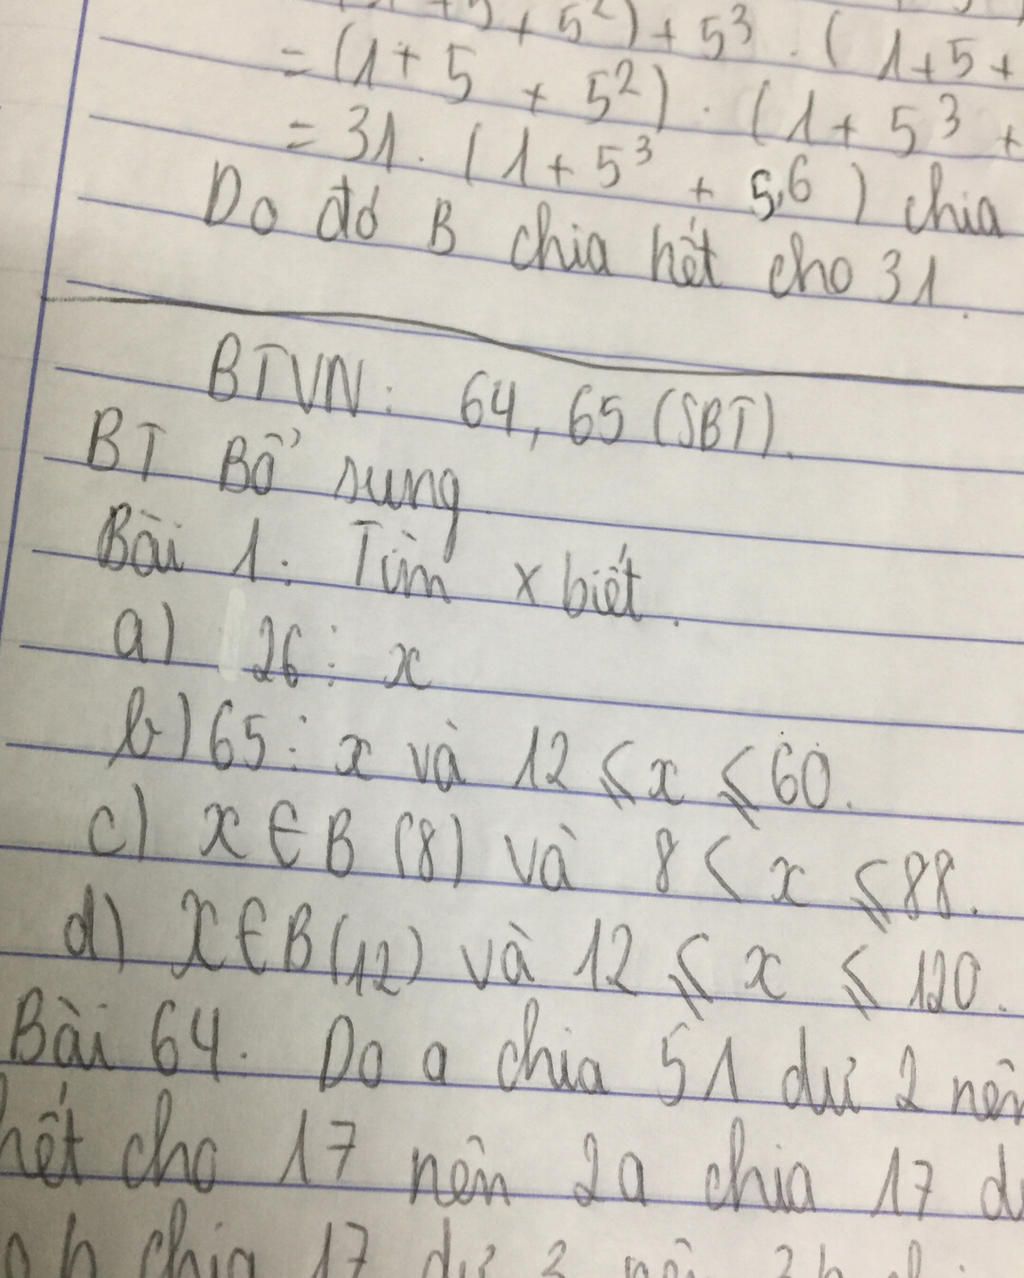 + 5²) + 5³ . (1+5+
= (1+ 5 + 5²) . (1+ 5³ +
= 31 . (1+5³ + 5,6) chia
Do đó B chia hết cho 31.
BTVN: 64, 65 (SBT).
BT Bổ sung
Bài 1: Tìm x biết.
a) 26 ⋮ x
b) 65 ⋮ x và 12 ⩽ x ⩽ 60.
c) x ∈ B (8) và 8 < x ⩽ 88.
d) x ∈ B(12) và 12 ⩽ x ⩽ 120.
Bài 64. Do a chia 51 dư 2 nên
hết cho 17 nên 2a chia 17 d
b chia 17 dư 3